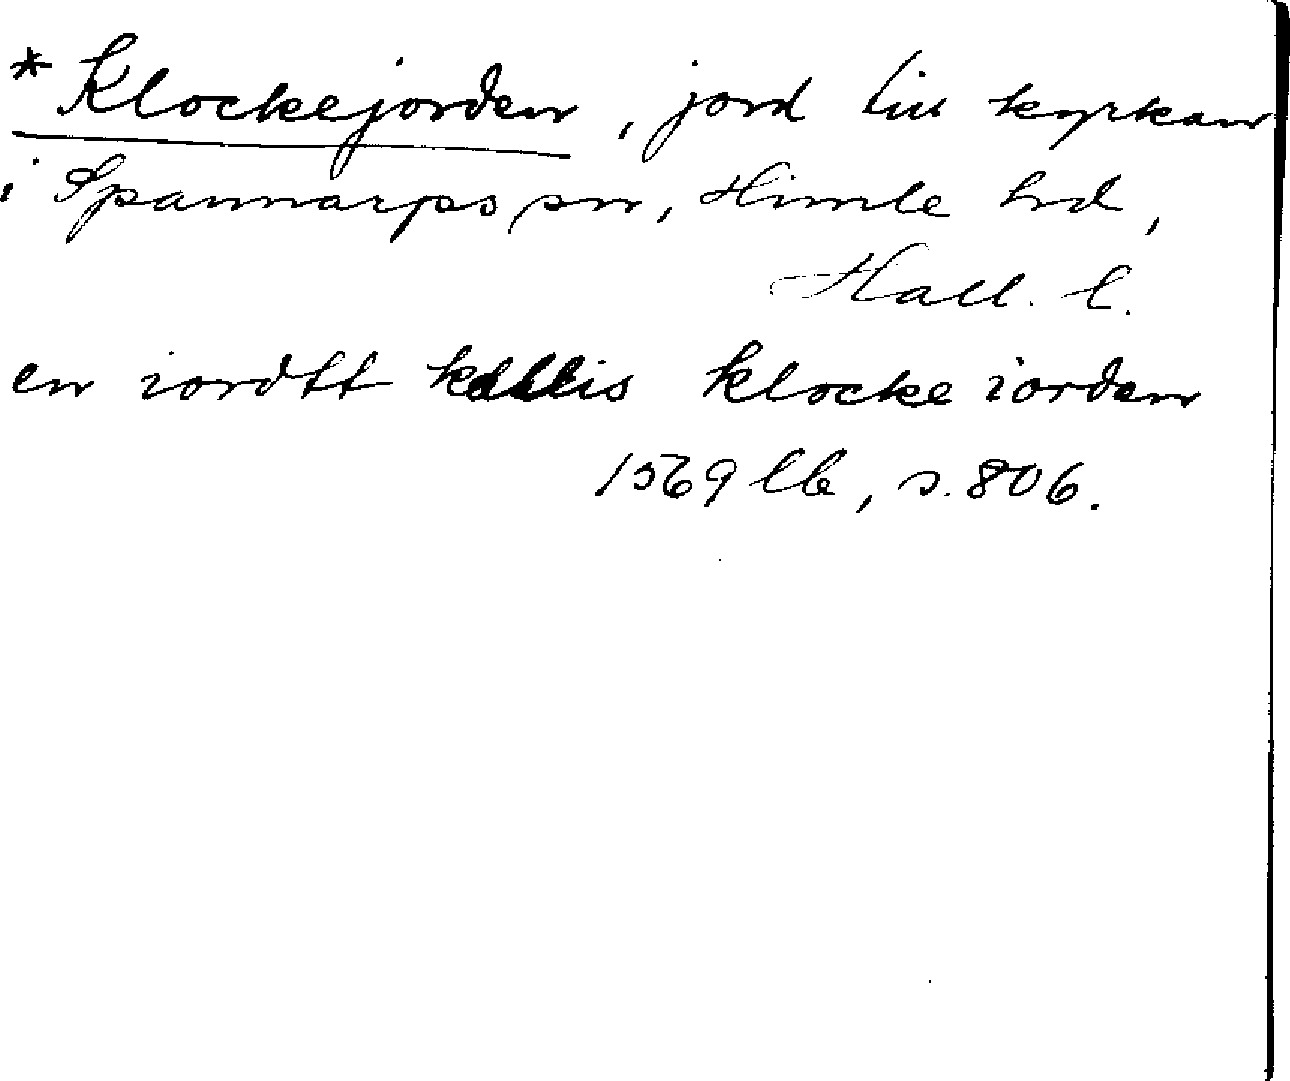 *Klockejorden, jord till kyrkan
i Spannarps sn, Himle hd,
Hall. l.
en iordtt kallis klocke iorden
1569 lb, s. 806.